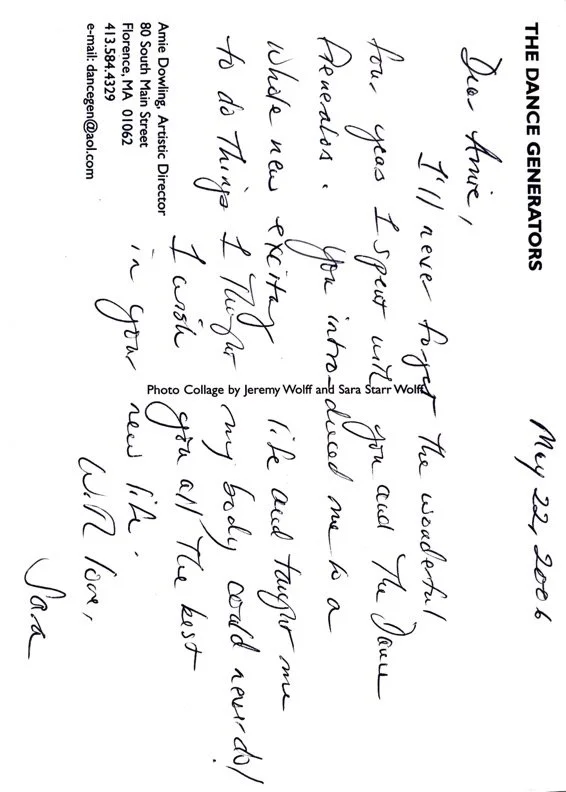 THE DANCE GENERATORS
May 22, 2006
Dear Amie,
I'll never forget the wonderful
four years I spent with you and The Dance
Generators. You introduced me to a
whole new exciting life and taught me
to do things I thought my body could never do!
I wish you all the best
in your new life.
With love,
Sara
Photo Collage by Jeremy Wolff and Sara Starr Wolff
Amie Dowling, Artistic Director
80 South Main Street
Florence, MA 01062
413.584.4329
e-mail: dancegen@aol.com